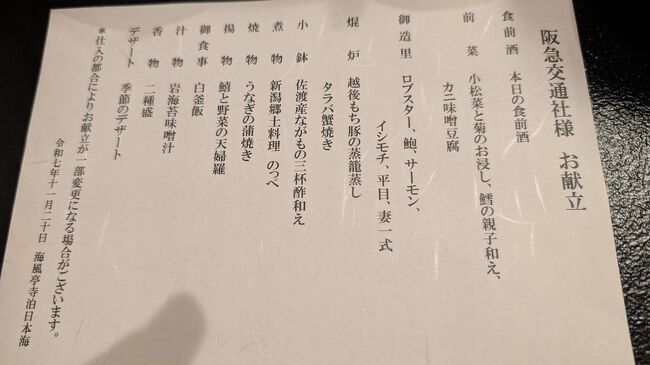 阪急交通社様 お献立
食前酒 本日の食前酒
前菜 小松菜と菊のお浸し、鱈の親子和え、
カニ味噌豆腐
御造里 ロブスター、鮑、サーモン、
イシモチ、平目、妻一式
焜炉 越後もち豚の蒸籠蒸し
タラバ蟹焼き
小鉢 佐渡産ながもの三杯酢和え
煮物 新潟郷土料理 のっぺ
焼物 うなぎの蒲焼き
揚物 鱚と野菜の天婦羅
御食事 白釜飯
汁物 岩海苔味噌汁
香物 二種盛
デザート 季節のデザート
*仕入の都合によりお献立が一部変更になる場合がございます。
令和七年十一月二十日 海風亭寺泊日本海